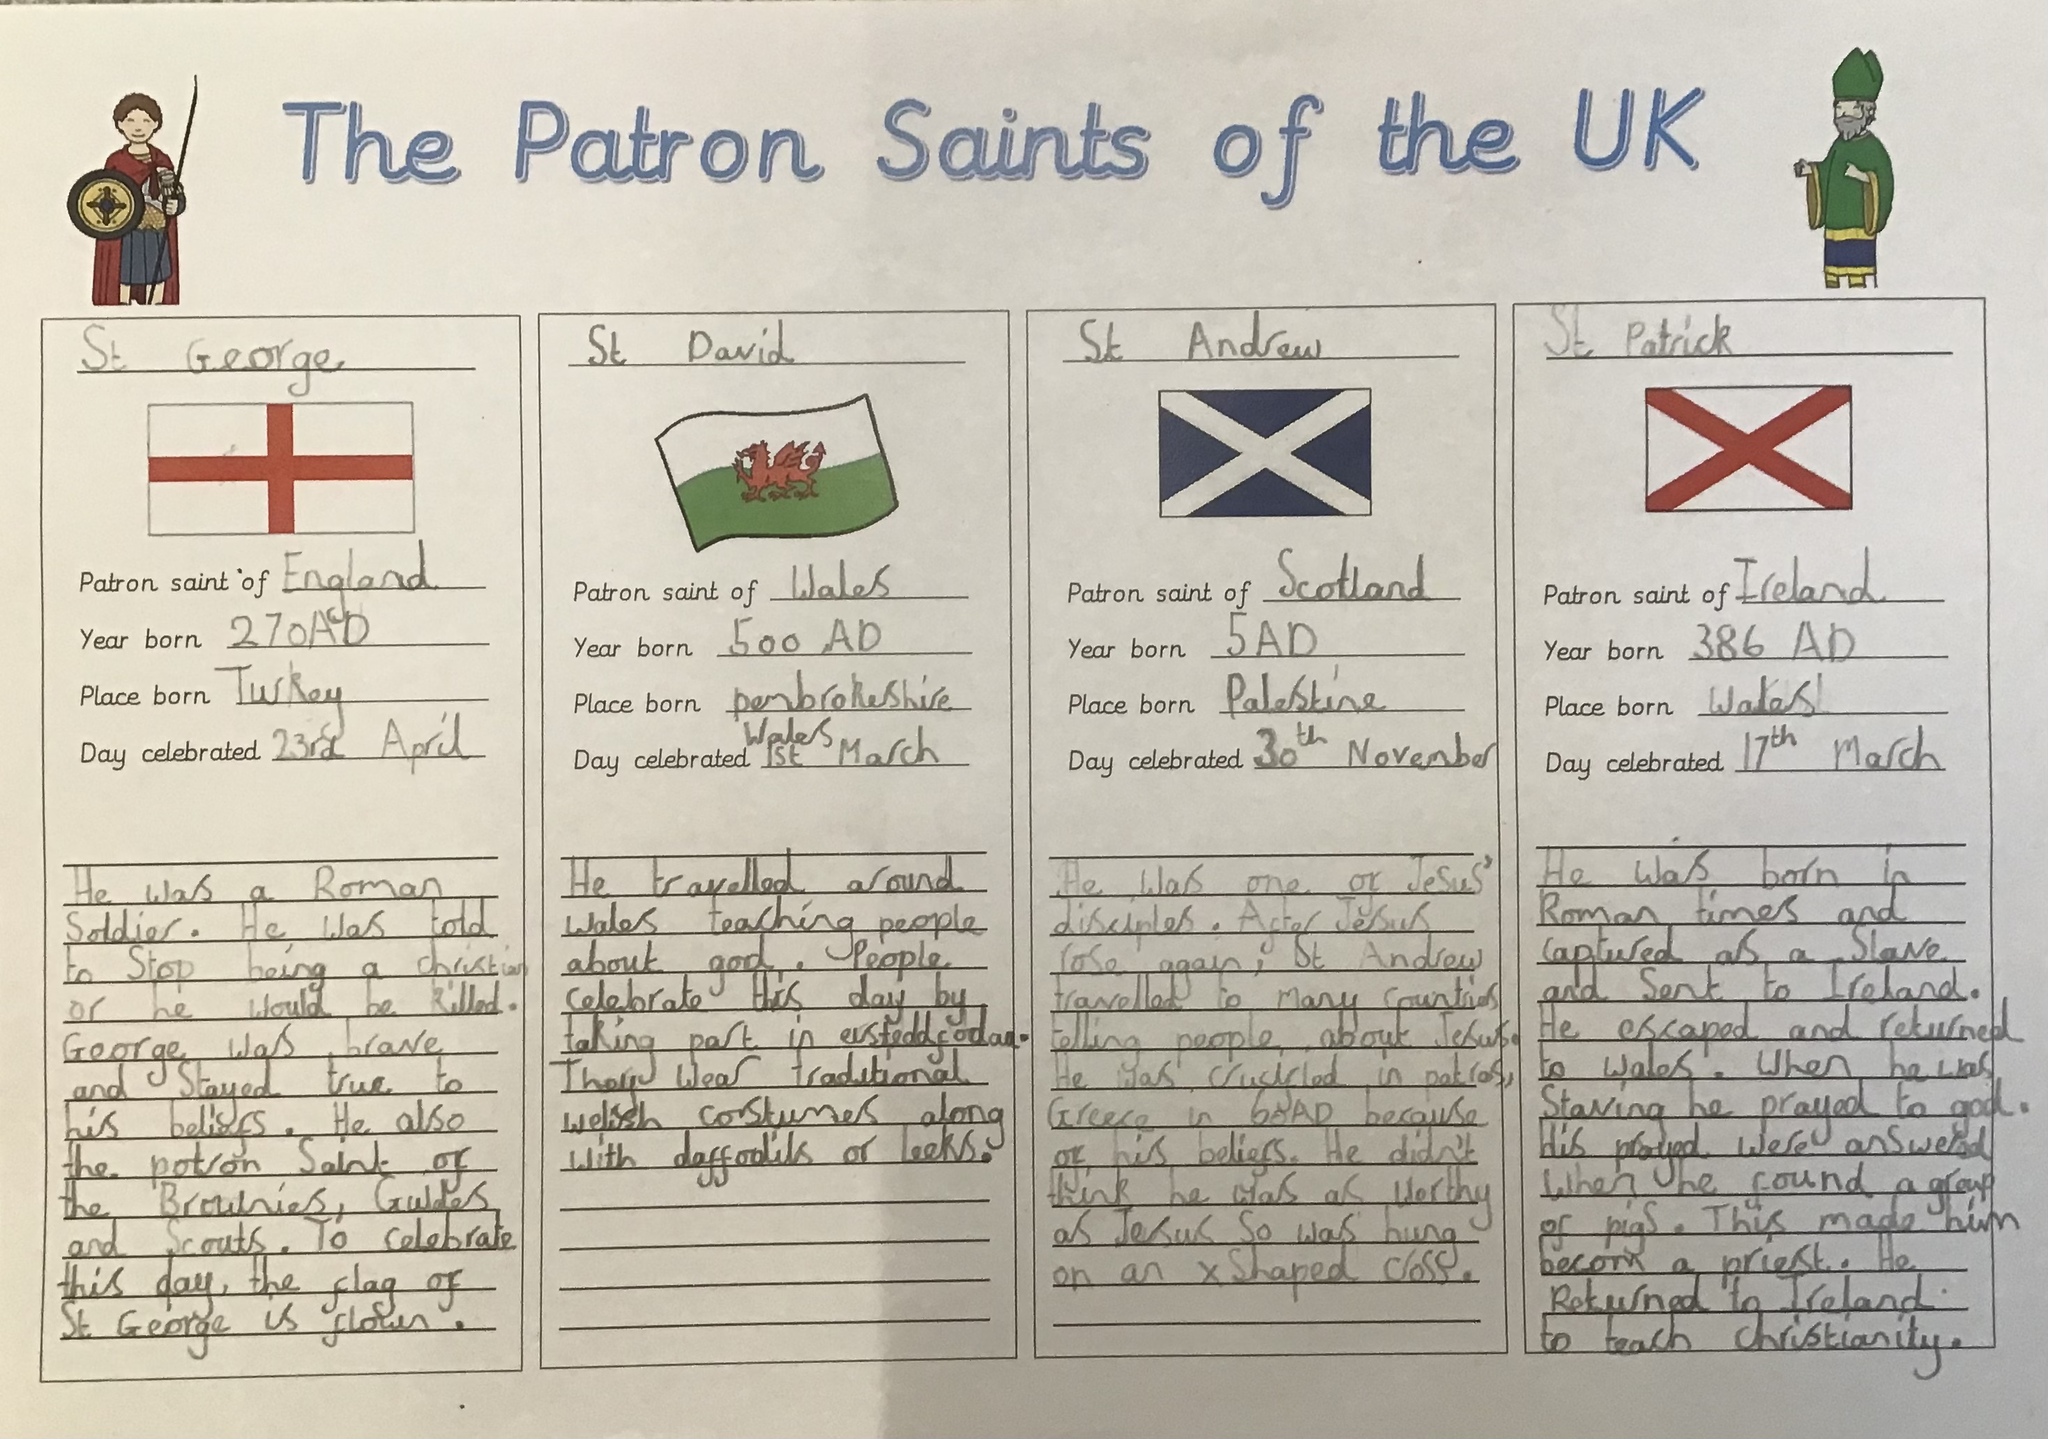 The Patron Saints of the UK
St George
Patron saint of England
Year born 270AD
Place born Turkey
Day celebrated 23rd April
He was a Roman
Soldier. He was told
to Stop being a christian
or he would be killed.
George was brave
and Stayed true to
his beliefs. He also
the patron Saint of
the Brownies, Guides
and Scouts. To celebrate
this day, the flag of
St George is flown.
St David
Patron saint of Wales
Year born 500 AD
Place born pembrokeshire
Wales
Day celebrated 1st March
He travelled around
Wales teaching people
about god. People
celebrate this day by
taking part in
They wear traditional
welish costumes along
with daffodils or leeks.
St Andrew
Patron saint of Scotland
Year born 5AD
Place born Palestine
Day celebrated 30th November
He was one of Jesus'
disciples. After Jesus
rose again, St Andrew
travelled to many countries
telling people about Jesus.
He was in patras,
Greece in AD because
of his beliefs. He didn't
think he was as Worthy
as Jesus So was hung
on an x Shaped cross.
St Patrick
Patron saint of Ireland
Year born 386 AD
Place born Wales
Day celebrated 17th March
He was born in
Roman times and
captured as a Slave
and Sent to Ireland.
He escaped and returned
to Wales. When he was
Starving he prayed to god.
His prayed were answered
When he found a group
of pigs. This made him
a priest. He
Returned to Ireland
to teach christianity.